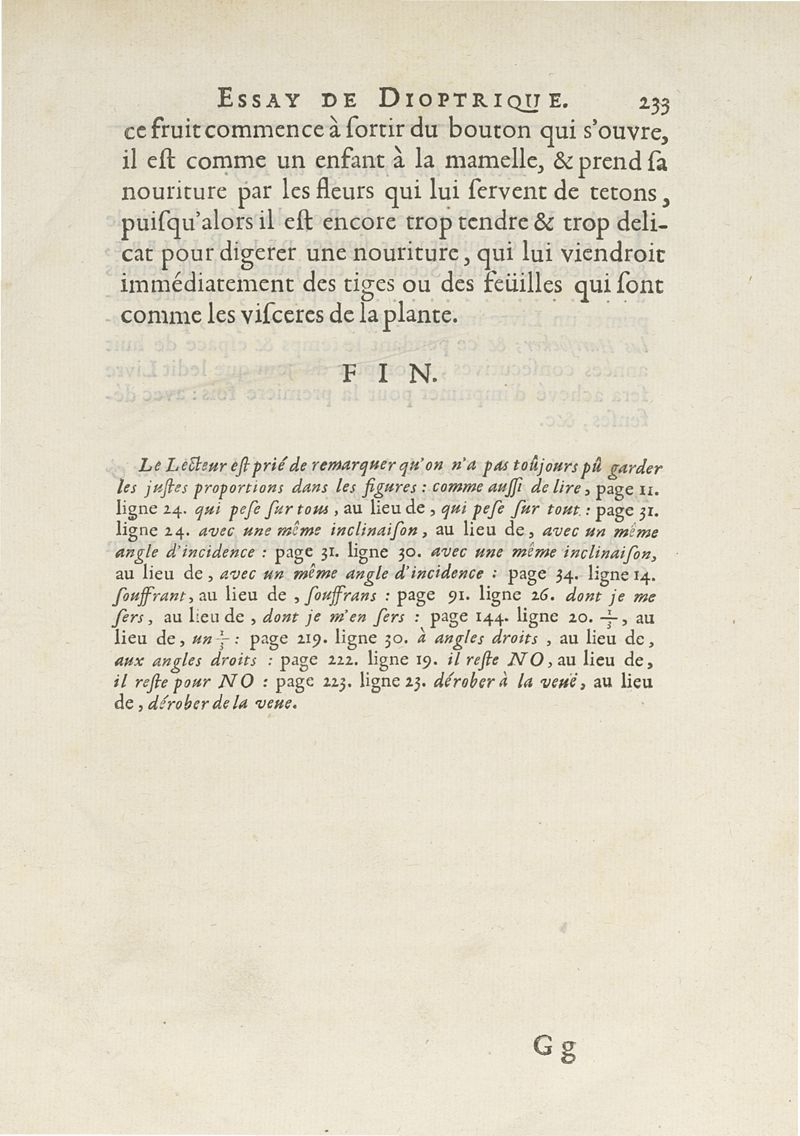 ESSAY DE DIOPTRIQUE. 233
ce fruit commence à ſortir du bouton qui s'ouvre,
il eſt comme un enfant à la mamelle, & prend ſa
nouriture par les fleurs qui lui ſervent de tetons,
puiſqu'alors il eſt encore trop tendre & trop deli-
cat pour digerer une nouriture, qui lui viendroit
immédiatement des tiges ou des feüilles qui ſont
comme les viſceres de la plante.
F I N.
Le Lecteur eſt prié de remarquer qu'on n'a pas toûjours pû garder
les juſtes proportions dans les figures : comme auſſi de lire, page 11.
ligne 24. qui peſe ſur tous, au lieu de, qui peſe ſur tout : page 31.
ligne 24. avec une même inclinaiſon, au lieu de, avec un même
angle d'incidence : page 31. ligne 30. avec une même inclinaiſon,
au lieu de, avec un même angle d'incidence : page 34. ligne 14.
ſouffrant, au lieu de, ſouffrans : page 91. ligne 26. dont je me
ſers, au lieu de, dont je m'en ſers : page 144. ligne 20. 1/3, au
lieu de, un 1/3 : page 219. ligne 30. à angles droits, au lieu de,
aux angles droits : page 222. ligne 19. il reſte NO, au lieu de,
il reſte pour NO : page 223. ligne 23. dérober à la veuë, au lieu
de, dérober de la veue.
G g